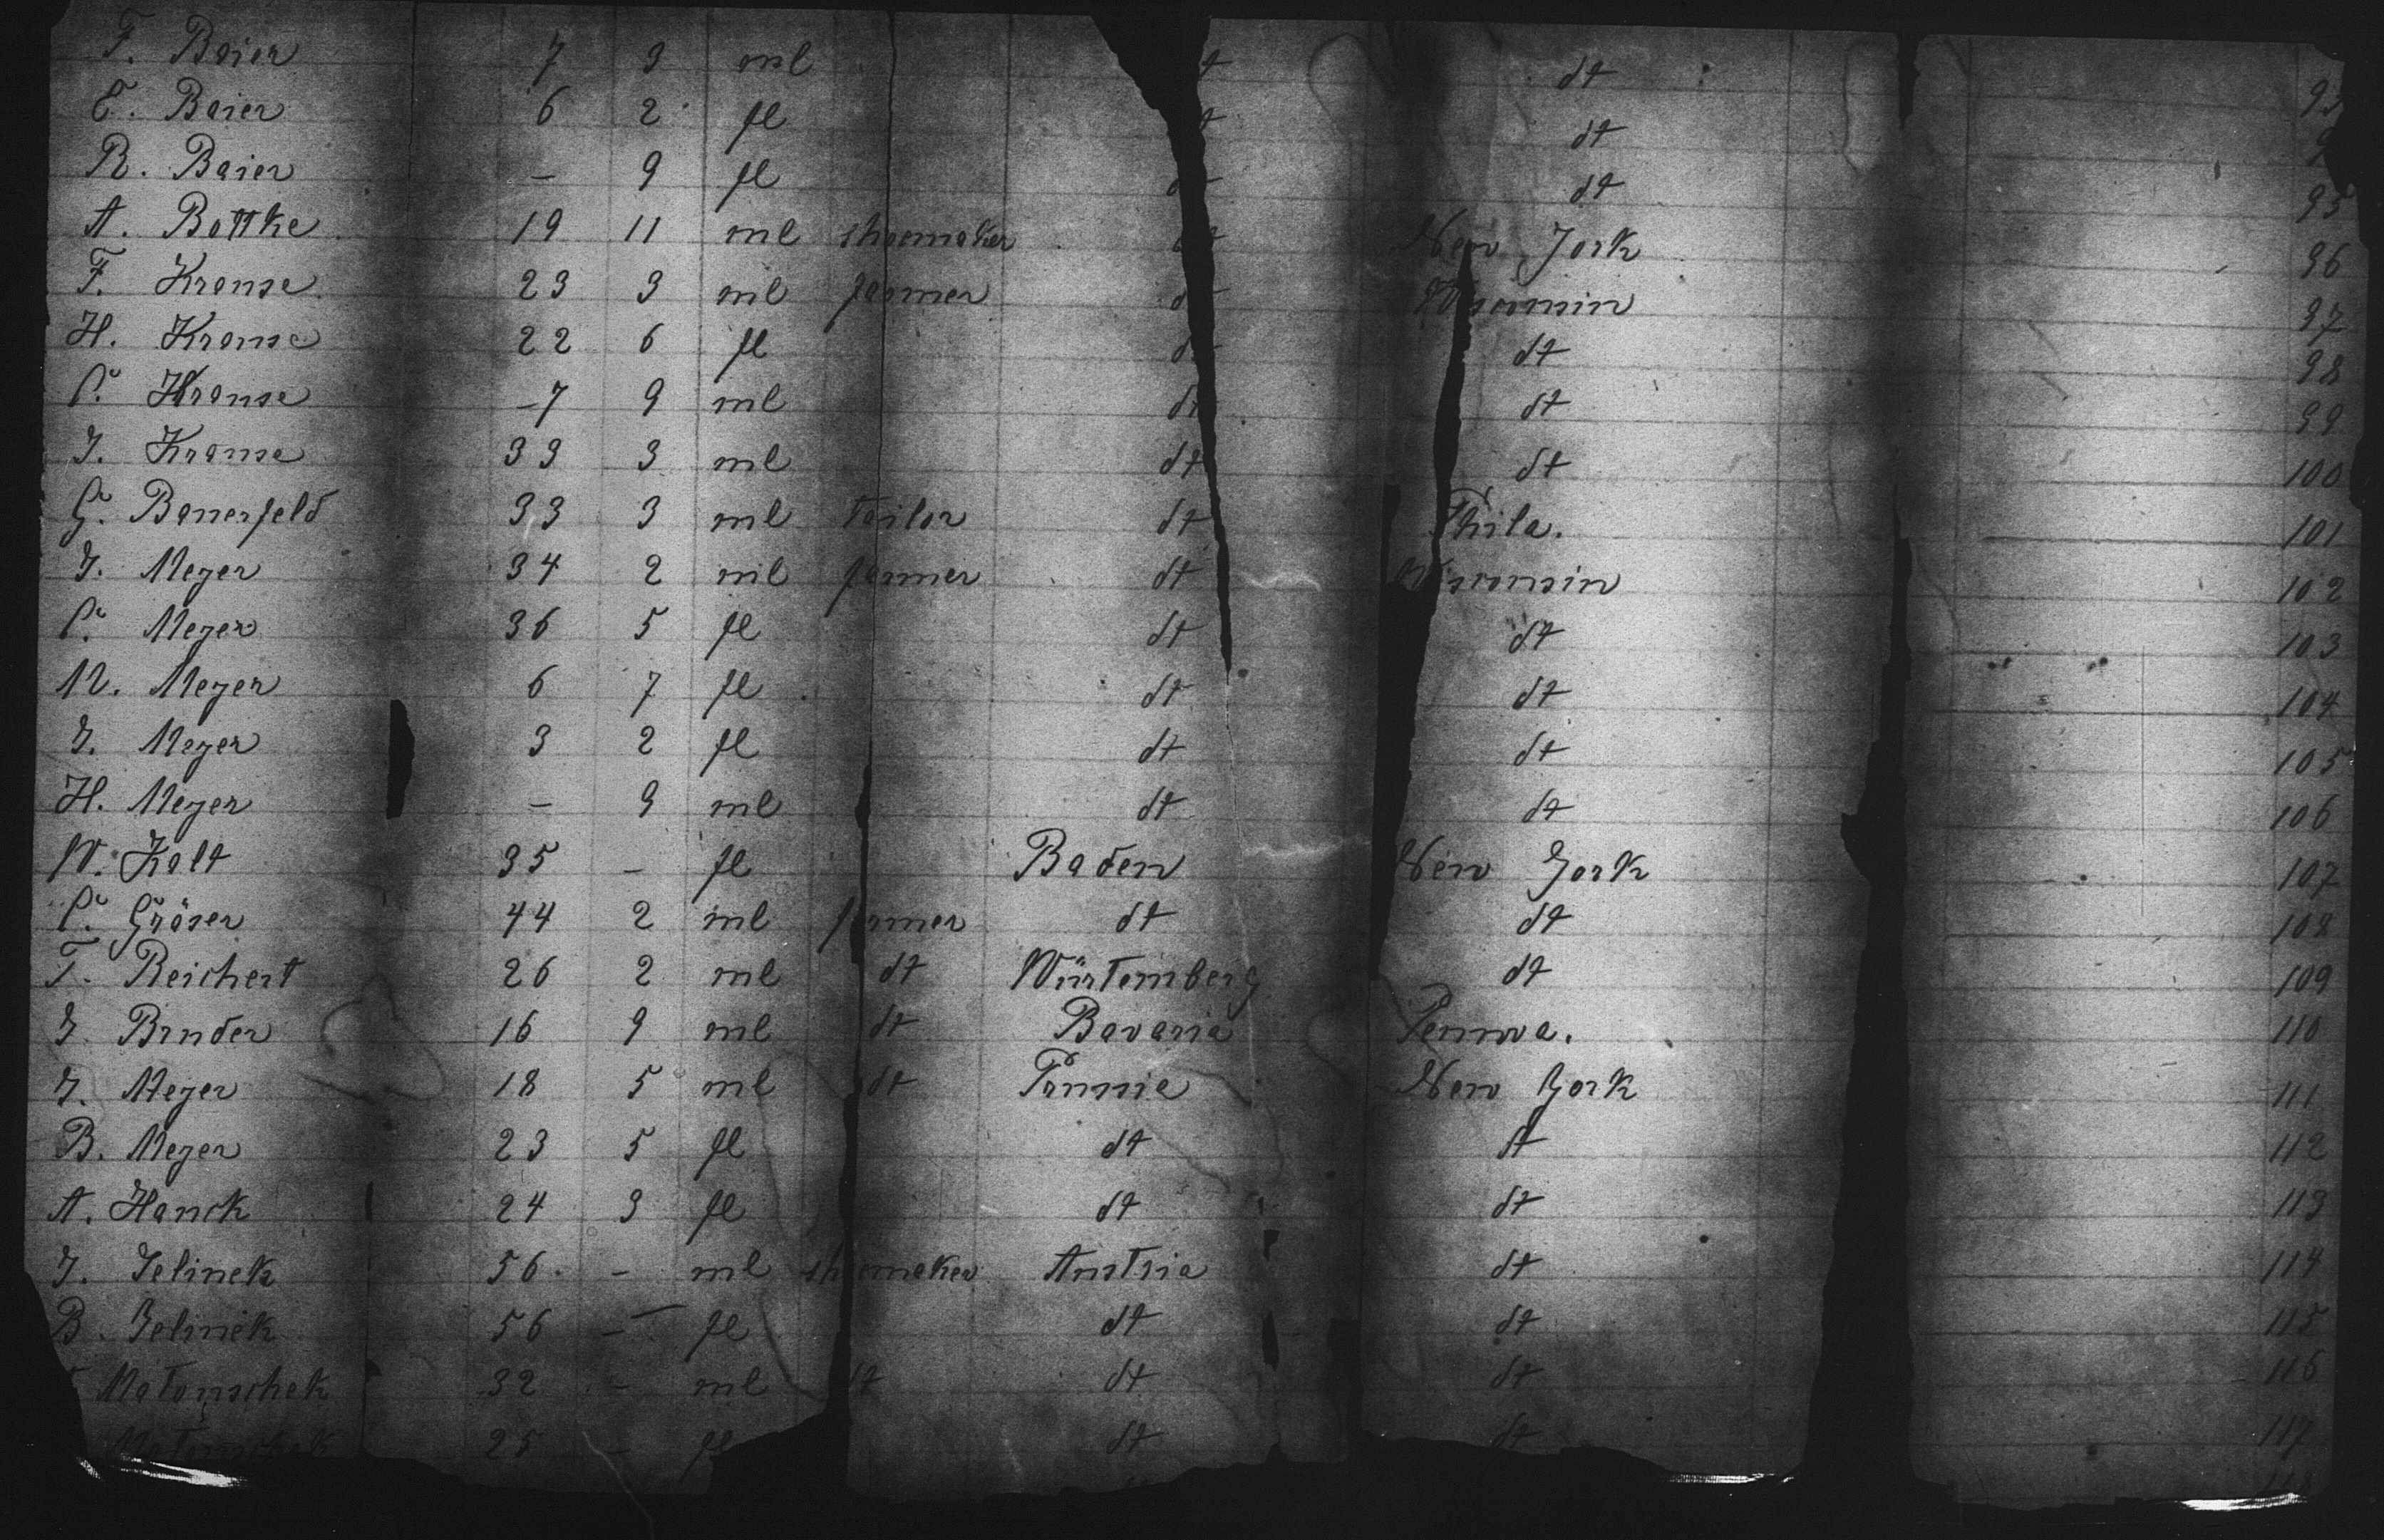 F. Baier 7 3 ml dt 93
E. Baier 6 2 fl dt
R. Baier – 9 fl dt dt 95
A. Bottke 19 11 ml shoemaker dt New York 96
F. Krause 23 3 ml farmer dt Wisconsin 97
H. Krause 22 6 fl dt dt 98
C. Krause –7 9 ml dt dt 99
J. Krause 33 3 ml dt dt 100
G. Bauerfeld 33 3 ml tailor dt Phila. 101
J. Meyer 34 2 ml farmer dt Wisconsin 102
C. Meyer 36 5 fl dt dt 103
M. Meyer 6 7 fl dt dt 104
J. Meyer 3 2 fl dt dt 105
H. Meyer – 9 ml dt dt 106
W. Kalt 35 – fl Baden New York 107
C. Gröser 44 2 ml farmer dt dt 108
T. Reichert 26 2 ml dt Würtemberg dt 109
J. Bruder 16 9 ml dt Bavaria Pennva. 110
J. Meyer 18 5 ml dt Prussia New York 111
B. Meyer 23 5 fl dt dt 112
A. Hauck 24 3 fl dt dt 113
J. Jelinek 56 – ml shoemaker Austria dt 114
B. Jelinek 56 – fl dt dt 115
Matouschek 32 – ml dt dt dt 116
Matouschek 25 – fl dt dt 117